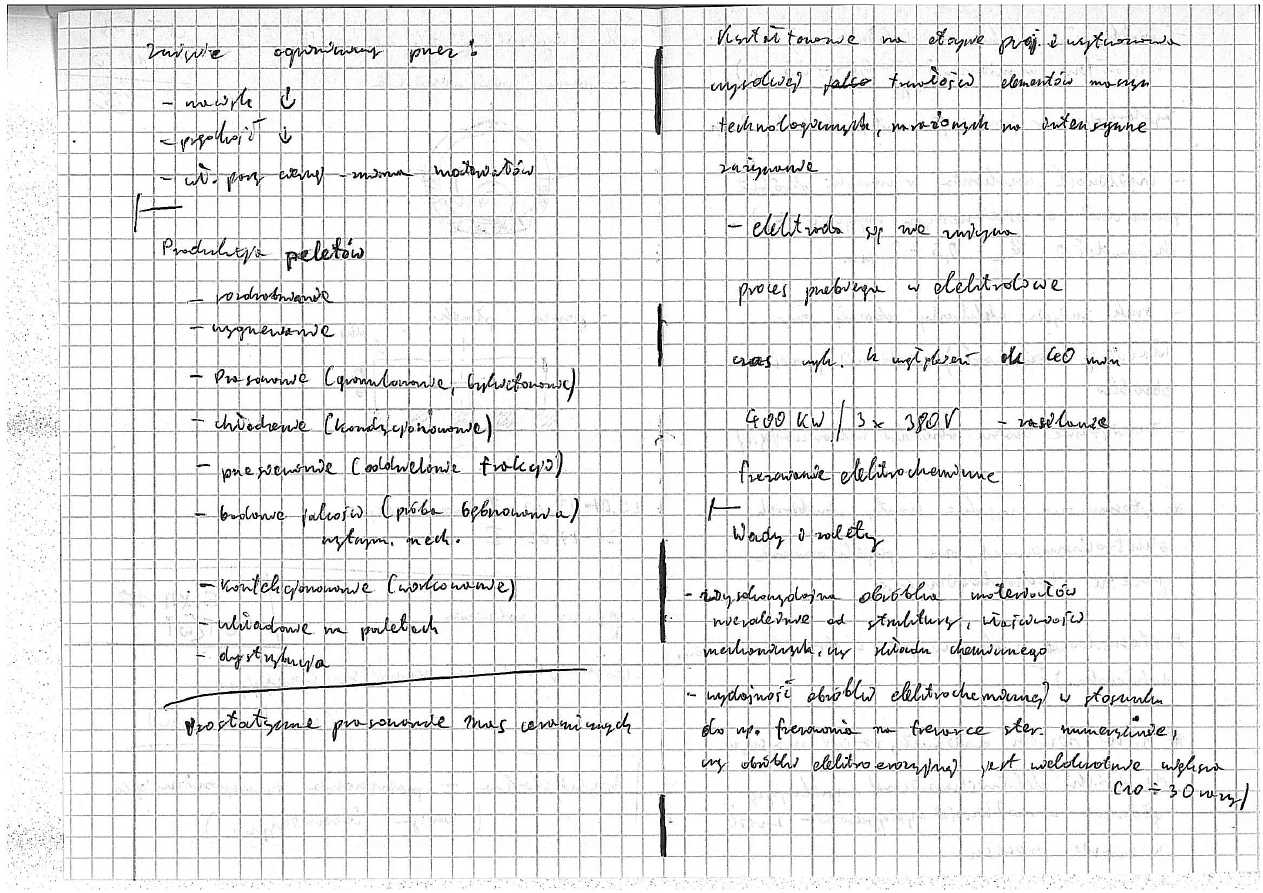 zużycie ograniczamy przez:
- nacisk ↓
- prędkość ↓
- wł. pary ciernej - zmiana materiałów
Produkcja peletów
- rozdrabnianie
- wygrzewanie
- Prasowanie (granulowanie, brykietowanie)
- chłodzenie (kondycjonowanie)
- przesiewanie (oddzielanie frakcji)
- badanie jakości (próba bębnowania)
wytrzym. mech.
- konfekcjonowanie (workowanie)
- układanie na paletach
- dystrybucja
Izostatyczne prasowanie mas ceramicznych
Kształtowanie na etapie proj. i wytwarzania
wysokiej trwałości elementów maszyn
technologicznych, narażonych na intensywne
zużywanie
- elektroda się nie zużywa
proces przebiega w elektrolicie
czas wyk. wgłębień ok 40 min
400 KW / 3 x 380V - zasilanie
frezowanie elektrochemiczne
Wady i zalety
- wysokowydajna obróbka materiałów
niezależnie od struktury, właściwości
mechanicznych, czy składu chemicznego
- wydajność obróbki elektrochemicznej w stosunku
do np. frezowania na frezarce ster. numerycznie,
czy obróbki elektroerozyjnej jest wielokrotnie większa
(10 ÷ 30 razy)